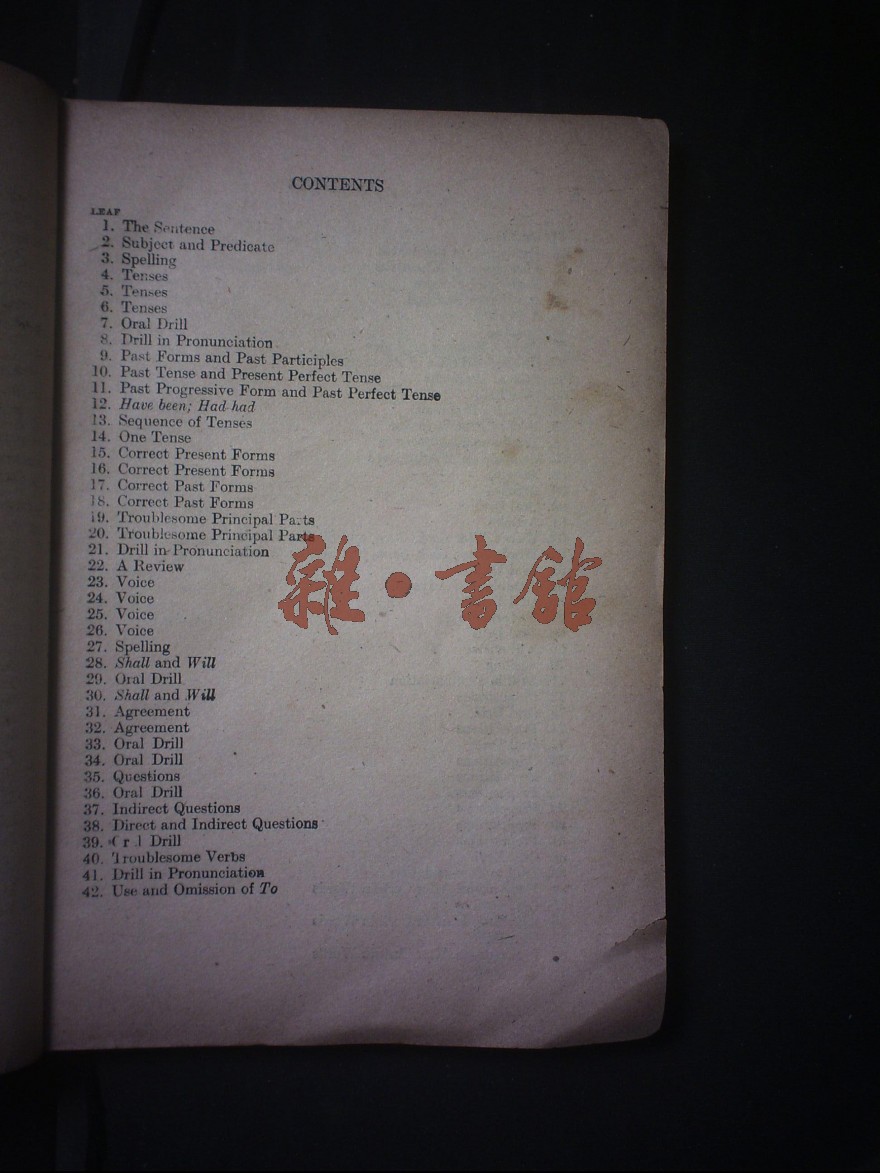 CONTENTS
LEAF
1. The Sentence
2. Subject and Predicate
3. Spelling
4. Tenses
5. Tenses
6. Tenses
7. Oral Drill
8. Drill in Pronunciation
9. Past Forms and Past Participles
10. Past Tense and Present Perfect Tense
11. Past Progressive Form and Past Perfect Tense
12. Have been; Had had
13. Sequence of Tenses
14. One Tense
15. Correct Present Forms
16. Correct Present Forms
17. Correct Past Forms
18. Correct Past Forms
19. Troublesome Principal Parts
20. Troublesome Principal Parts
21. Drill in Pronunciation
22. A Review
23. Voice
24. Voice
25. Voice
26. Voice
27. Spelling
28. Shall and Will
29. Oral Drill
30. Shall and Will
31. Agreement
32. Agreement
33. Oral Drill
34. Oral Drill
35. Questions
36. Oral Drill
37. Indirect Questions
38. Direct and Indirect Questions
39. Oral Drill
40. Troublesome Verbs
41. Drill in Pronunciation
42. Use and Omission of To
雜•書館